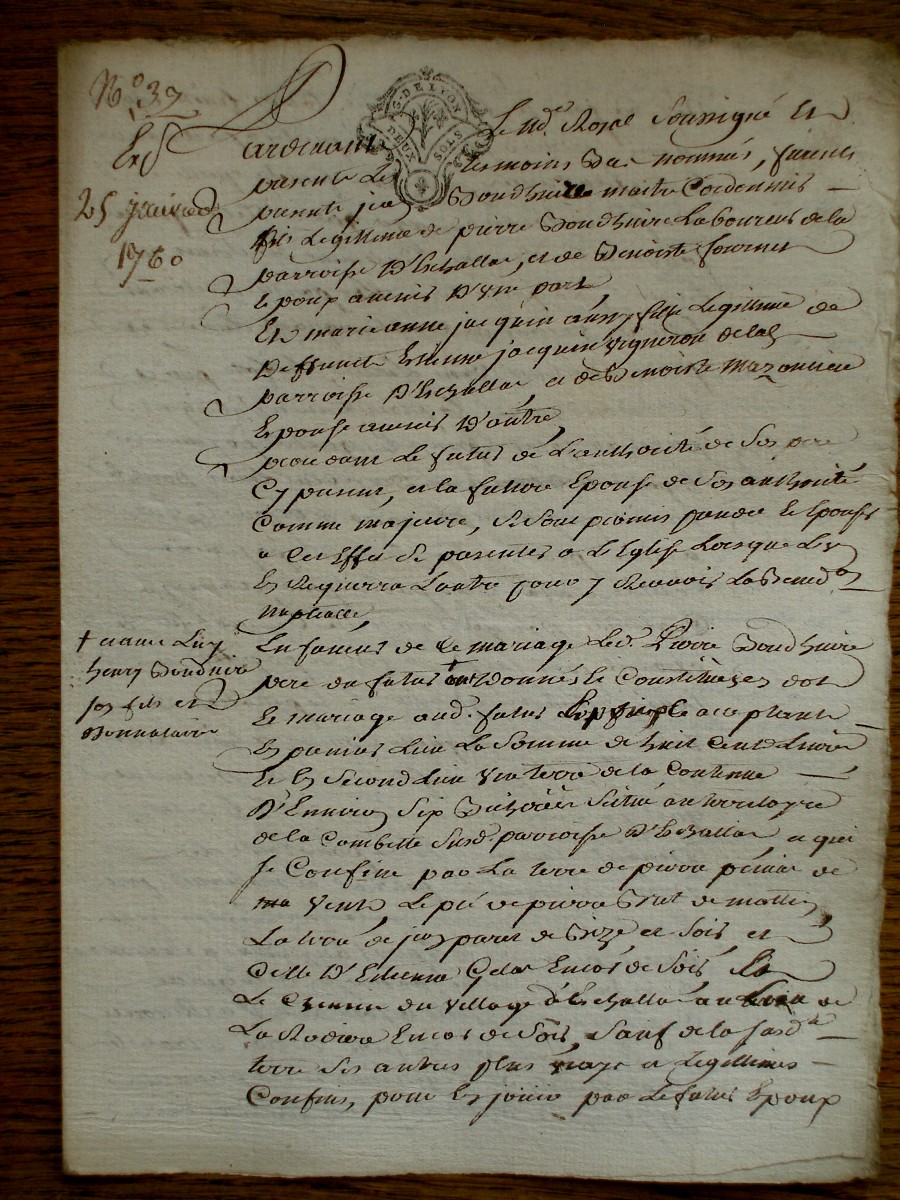 N.o 37
Exp
25 janvier
1760
G. DE LYON
DEUX SOLS
Pardevant Le nd.e Royal Soussigné Et
presents Les temoins Bas nommés, furent
presents jean Boudhuire maitre Cordonnier
fils Legitime de pierre Boudhuire Laboureur de la
parroisse D'Echallas, et de Benoiste fournet
Epoux avenir D'Une part
Et marieanne jacquin aussy fille Legitime de
Deffunct Etienne jacquin vigneron de lad
parroisse D'Echallas et de Benoiste
Epouse avenir D'autre
procedant Le futur de L'authorité de Son pere
Cy present, et la future Epouse de Son authorité
Comme majeure, Se Sont promis prendre Et Epouser
a Cet Effet Se presenter a L'Eglise Lorsque L'un
En Requerra L'autre pour y Recevoir La Bened.on
nuptialle
En faveur de Ce mariage Led. Pierre Boudhuire
pere du futur + donné Et Constitué en dot
Et mariage aud. futur acceptant
En premier Lieu La Somme de huit Cent Livres
Et En Second Lieu Une terre de la Contenue
D'Environ Six Bicherées Située au territoyre
de la Combette Susd. parroisse D'Echallas, et qui
Se Confine par La terre de pierre de
vent, Le pré de pierre de matin,
La terre de jean de Bize et Soir et
Celle D'Etienne Encor de Soir
Le Chemin du village d'Echallas au de
La Rodiere Encor de Soir, Sauf de la Susd.te
terre Ses autres plus vrays et Legitimes
Confins, pour En jouir par Le futur Epoux
+ henry Boudhuire
son fils et
Donnataire